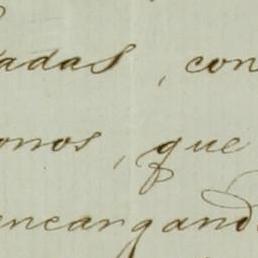 adas, con
onos, que
encargand